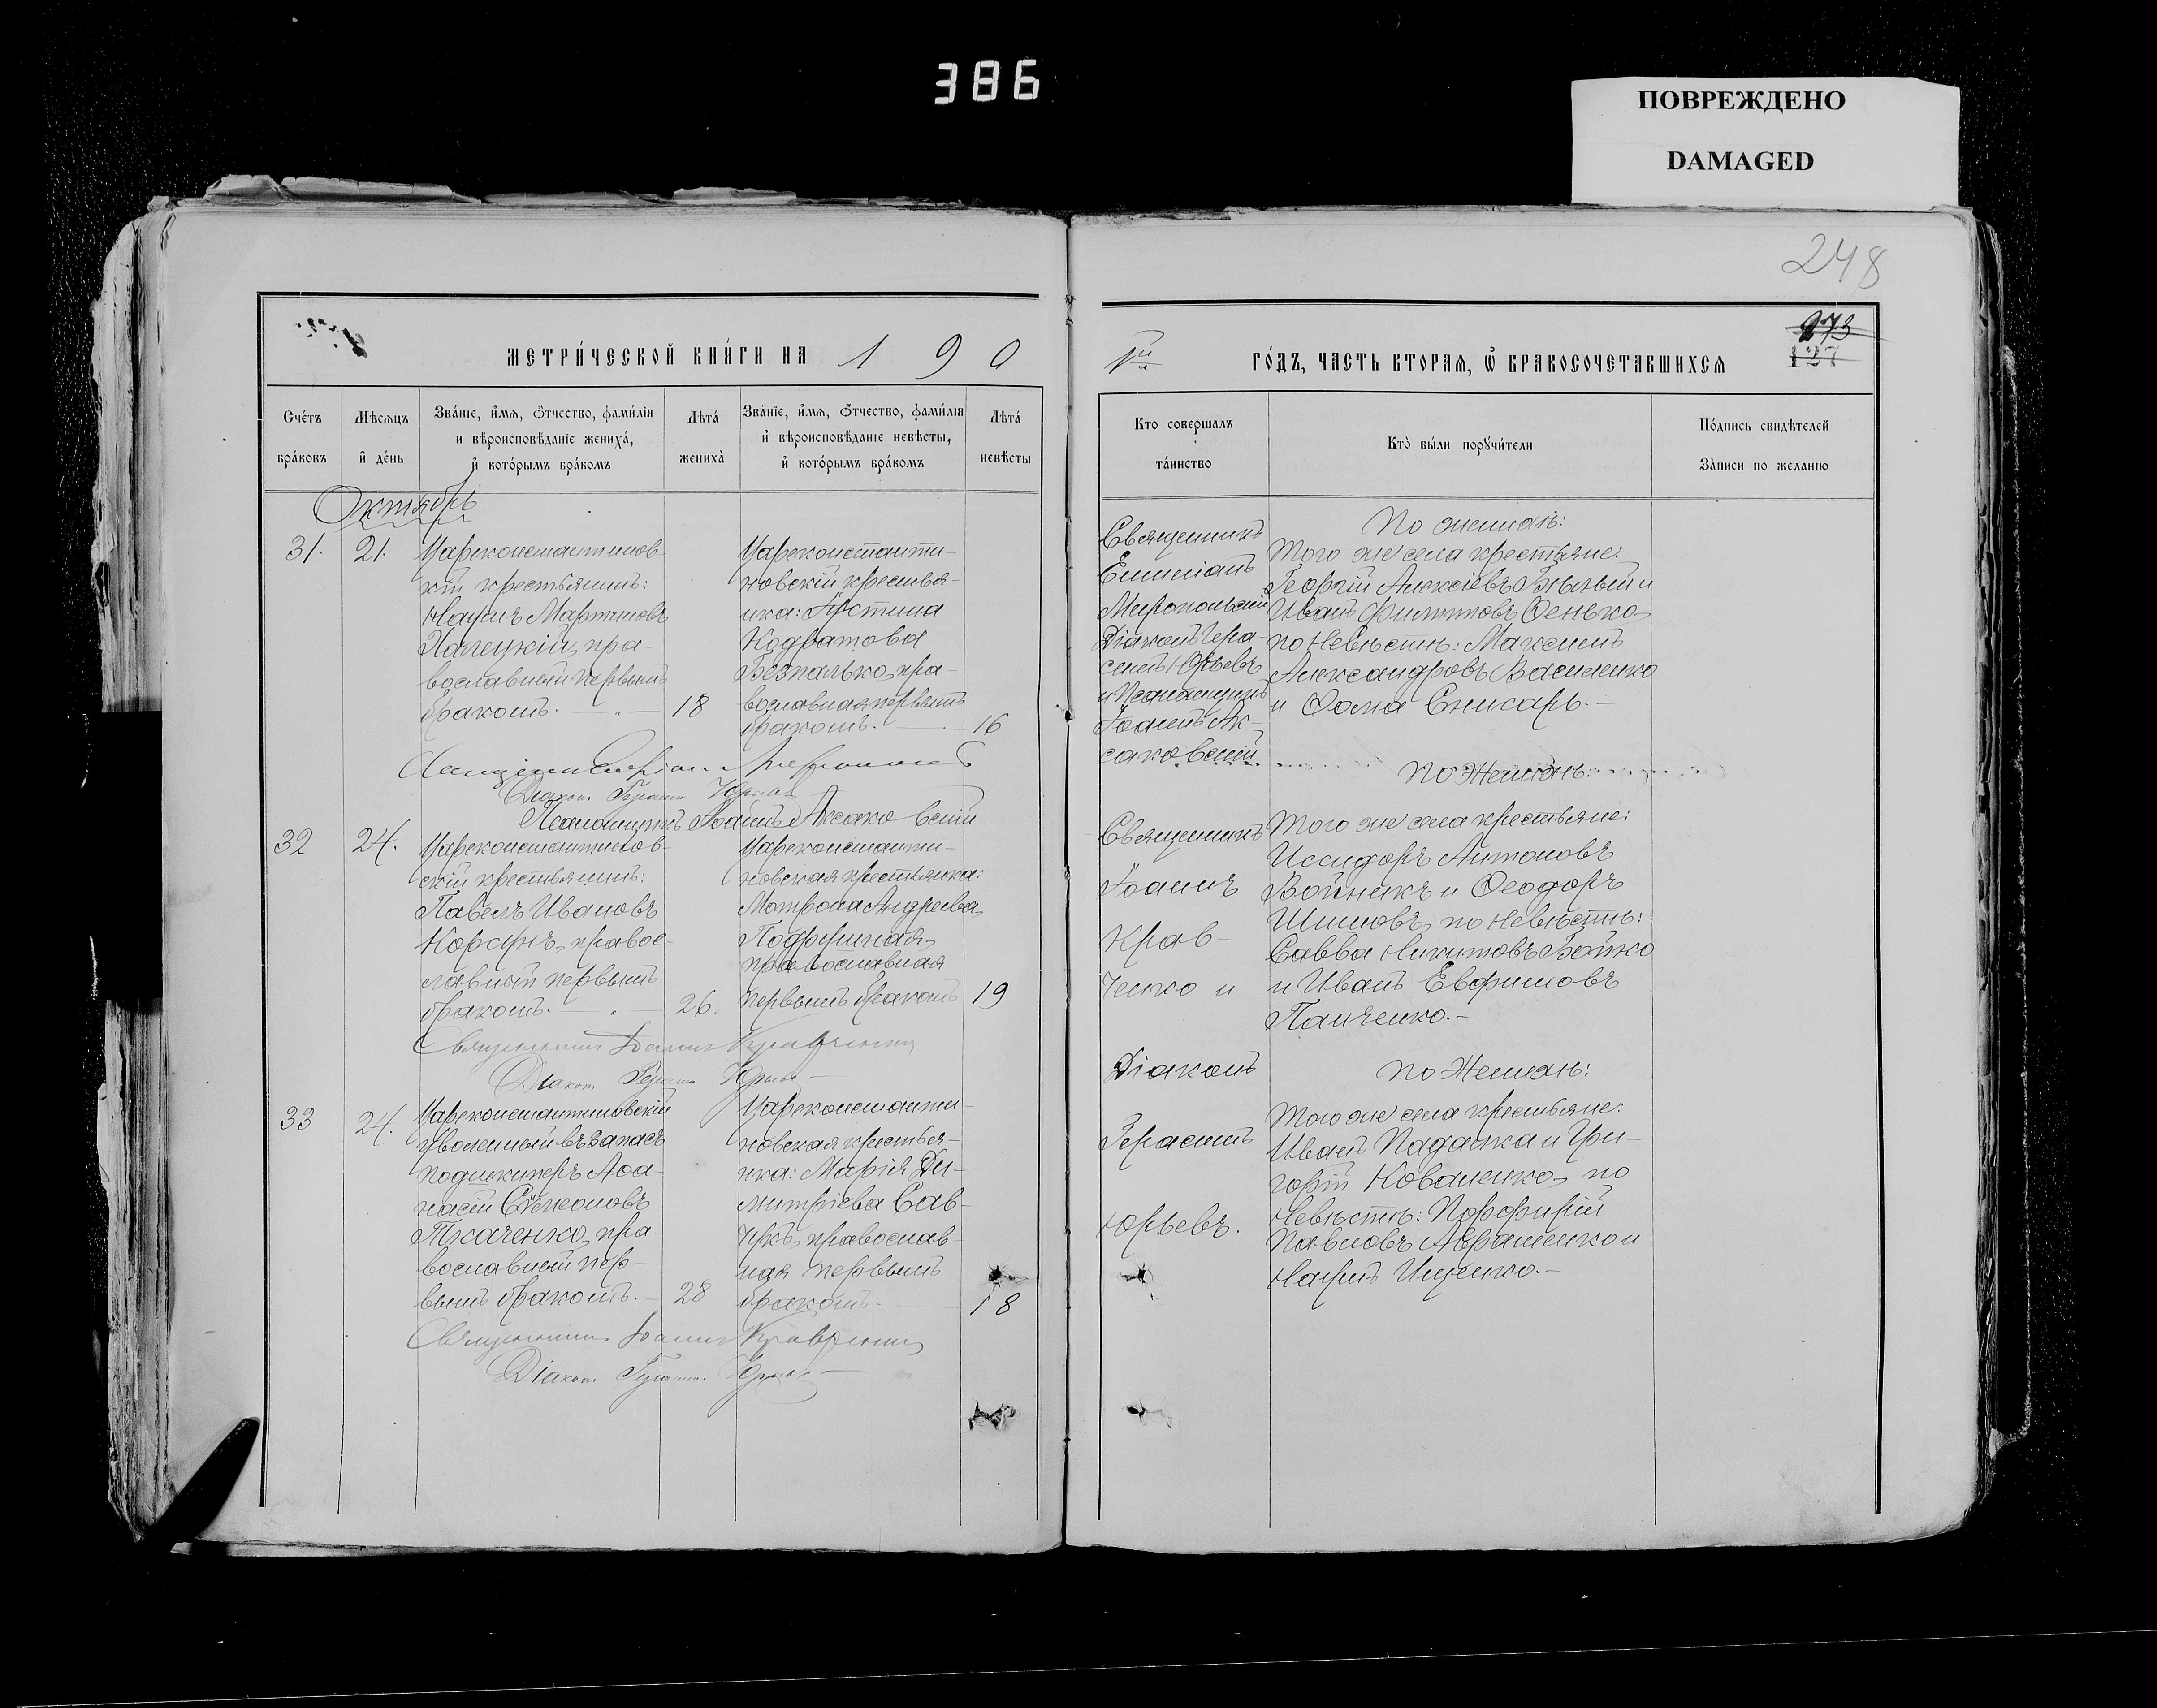 386
ПОВРЕЖДЕНО
DAMAGED
248
273
127
МЕТРИ́ЧЕСКОЙ КНИ́ГИ НА 1 9 0
ГО́ДЪ, ЧАСТЬ ВТОРАЯ, Ѿ БРАКОСОЧЕТАВШИХСЯ
Счétъ бра́ковъ
Мѣсяцъ и҆ де́нь
Зва́нїе, и҆́мѧ, ѻ҆́тчество, фами́лїѧ
и вѣроисповѣ́данїе жениха́,
и҆ кото́рымъ бра́комъ
Лѣта́ жениха̀
Зва́нїе, и҆́мѧ, ѻ҆́тчество, фами́лїѧ
и҆ вѣроисповѣ́данїе невѣ́сты,
и҆ кото́рымъ бра́комъ
Лѣта́ невѣ́сты
Кто совершалъ
та́инство
Кто̀ бы́ли порꙋчи́тели
По́дпись свидѣ́телей
За́писи по жела́нїю
Октябрь
31. 21.
Цареконстантинов-
кій крестьянинъ:
Наумъ Мартиновъ
пра-
вославный первымъ
бракомъ. — 18
Цареконстанти-
новскій крестья-
нка: Іустина
Кодратова
Безпалько, пра-
вославная первымъ
бракомъ. — 16
Священникъ
Емиліанъ
Миропольскій
Діаконъ Гера-
симъ Юрьевъ
и Псаломщикъ
Іоаннъ Ак-
саковскій
По женихѣ:
Того же села крестьяне:
Георгій Алексіевъ Бѣлый и
Иванъ Филипповъ Сенько,
по Невѣстѣ: Максимъ
Александровъ Василенко
и Ѳома Снисарь. —
Діаконъ Герасимъ Юрьевъ
Псаломщикъ Іоаннъ Аксаковскій
32 24.
Цареконстантинов-
скій крестьянинъ:
Павелъ Ивановъ
правос-
лавный первымъ
бракомъ. — 26.
Цареконстанти-
новская крестьянка:
Матрона Андреева
православная
первымъ бракомъ 19
Священникъ
Іоаннъ
Крав-
ченко и
Діаконъ
Герасимъ
Юрьевъ.
По Женихѣ:
Того же села крестьяне:
Иссидоръ Антоновъ
Войникъ и Ѳеодоръ
Шишовъ, по Невѣстѣ:
Савва Никитовъ Бойко
и Иванъ Евфимовъ
Панченко. —
Священникъ Іоаннъ Кравченко
Діаконъ Герасимъ Юрьевъ —
33 24.
Цареконстантиновскій
уволенный въ запасъ
подшкиперъ Аѳа-
насій Симеоновъ
Ткаченко, пра-
вославный пер-
вымъ бракомъ. — 28
Цареконстанти-
новская крестья-
нка: Марія Ди-
митріева Сав-
чукъ, православ-
ная первымъ
бракомъ. 18
По Женихѣ:
Того же села крестьяне:
Иванъ Падалка и Гри-
горій Коваленко, по
Невѣстѣ: Порфирій
Павловъ Авраменко и
Наумъ Ищенко. —
Священникъ Іоаннъ Кравченко
Діаконъ Герасимъ Юрьевъ —